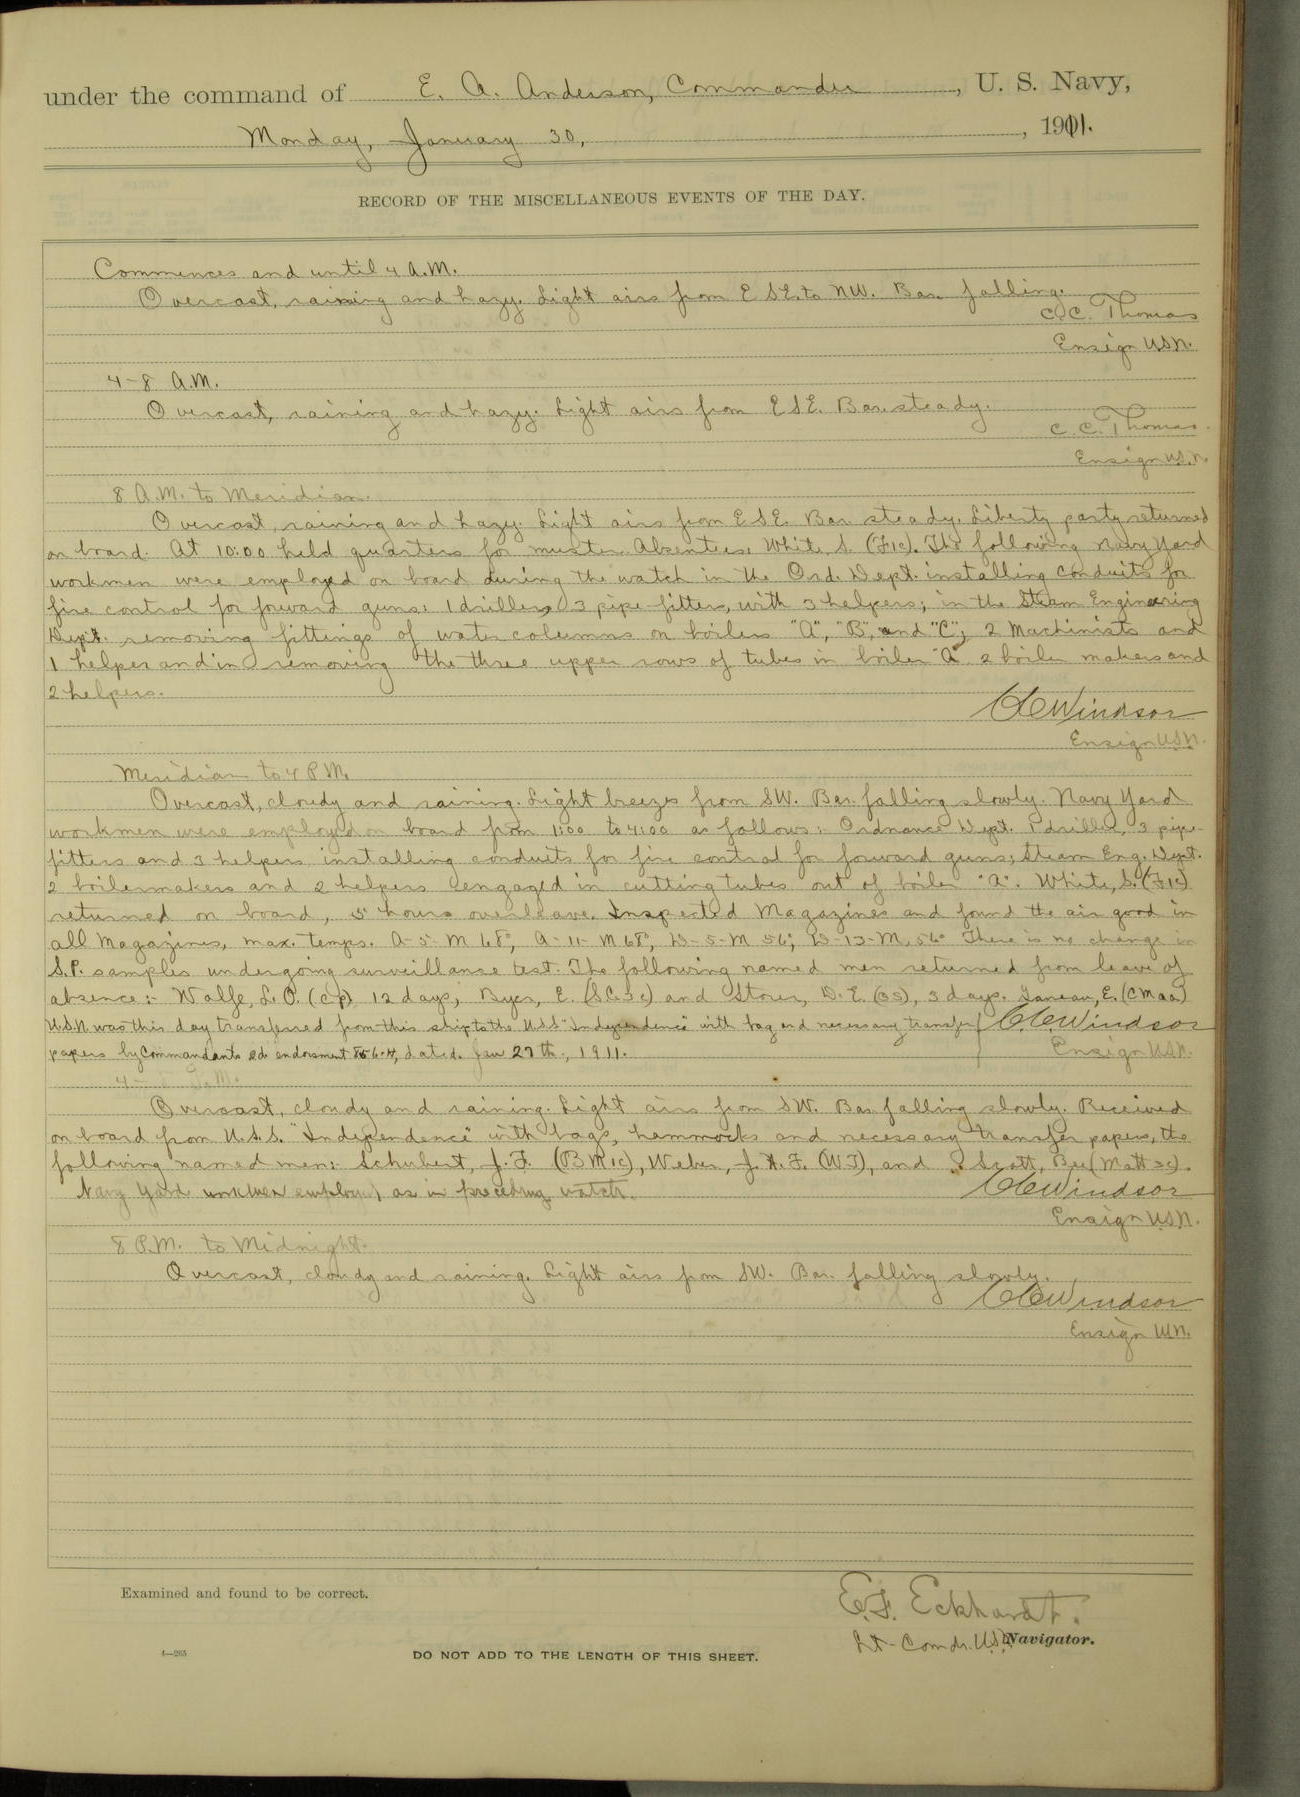 under the command of E. A. Anderson, Commander, U. S. Navy,
Monday, January 30, 1911.
RECORD OF THE MISCELLANEOUS EVENTS OF THE DAY.
Commences and until 4 A.M.
Overcast, raining and hazy. Light airs from ESE to NW. Bar. falling.
C. C. Thomas
Ensign USN.
4-8 A.M.
Overcast, raining and hazy. Light airs from ESE. Bar. steady.
C. C. Thomas.
Ensign U.S.N.
8 A.M. to Meridian.
Overcast, raining and hazy. Light airs from ESE. Bar steady. Liberty party returned
on board. At 10:00 held quarters for muster. Absentees, White, S. (F1c). The following Navy Yard
workmen were employed on board during the watch in the Ord. Dept. installing conduits for
fire control for forward guns: 1 driller, 3 pipe-fitters, with 3 helpers; in the Steam Engineering
Dept. removing fittings of water columns on boilers "A", "B", and "C"; 2 Machinists and
1 helper and in removing the three upper rows of tubes in boiler "A" 2 boiler makers and
2 helpers.
Windsor
Ensign USN.
Meridian to 4 P.M.
Overcast, cloudy and raining. Light breezes from SW. Bar. falling slowly. Navy Yard
workmen were employed on board from 1:00 to 4:00 as follows: Ordnance Dept. 1 driller, 3 pipe-
fitters and 3 helpers installing conduits for fire control for forward guns; Steam Eng. Dept.
2 boilermakers and 2 helpers engaged in cutting tubes out of boiler "A". White, S. (F1c)
returned on board, 5 hours overleave. Inspected Magazines and found the air good in
all Magazines, max. temps. A-5-M 68°, A-11-M 68°, D-5-M 56°, D-13-M, 56° There is no change in
S.P. samples undergoing surveillance test. The following named men returned from leave of
absence:- Wolfe, L. O. (cp) 12 days, Byer, E. (S.C.3c) and Storer, D. E. (OS), 3 days. E. (CMaa)
U.S.N was this day transferred from this ship to the U.S.S "Independence" with bag and necessary transfer
papers by Commandants endorsment 856-H, dated. Jan 27th., 1911.
Windsor
Ensign USN.
4- P.M.
Overcast, cloudy and raining. Light airs from SW. Bar. falling slowly. Received
on board from U.S.S. "Independence" with bags, hammocks and necessary transfer papers, the
following named men: Schubert, J. F. (BM1c), Weber, J. H. F. (WT), and Scott, Bee (Matt 3c).
Navy Yard workmen employed as in preceding watch.
Windsor
Ensign USN.
8 P.M. to Midnight.
Overcast, cloudy and raining. Light airs from SW. Bar. falling slowly.
Windsor
Ensign USN.
Examined and found to be correct.
E. F. Eckhardt.
Lt-Comdr. U.S.N. Navigator.
4—265
DO NOT ADD TO THE LENGTH OF THIS SHEET.